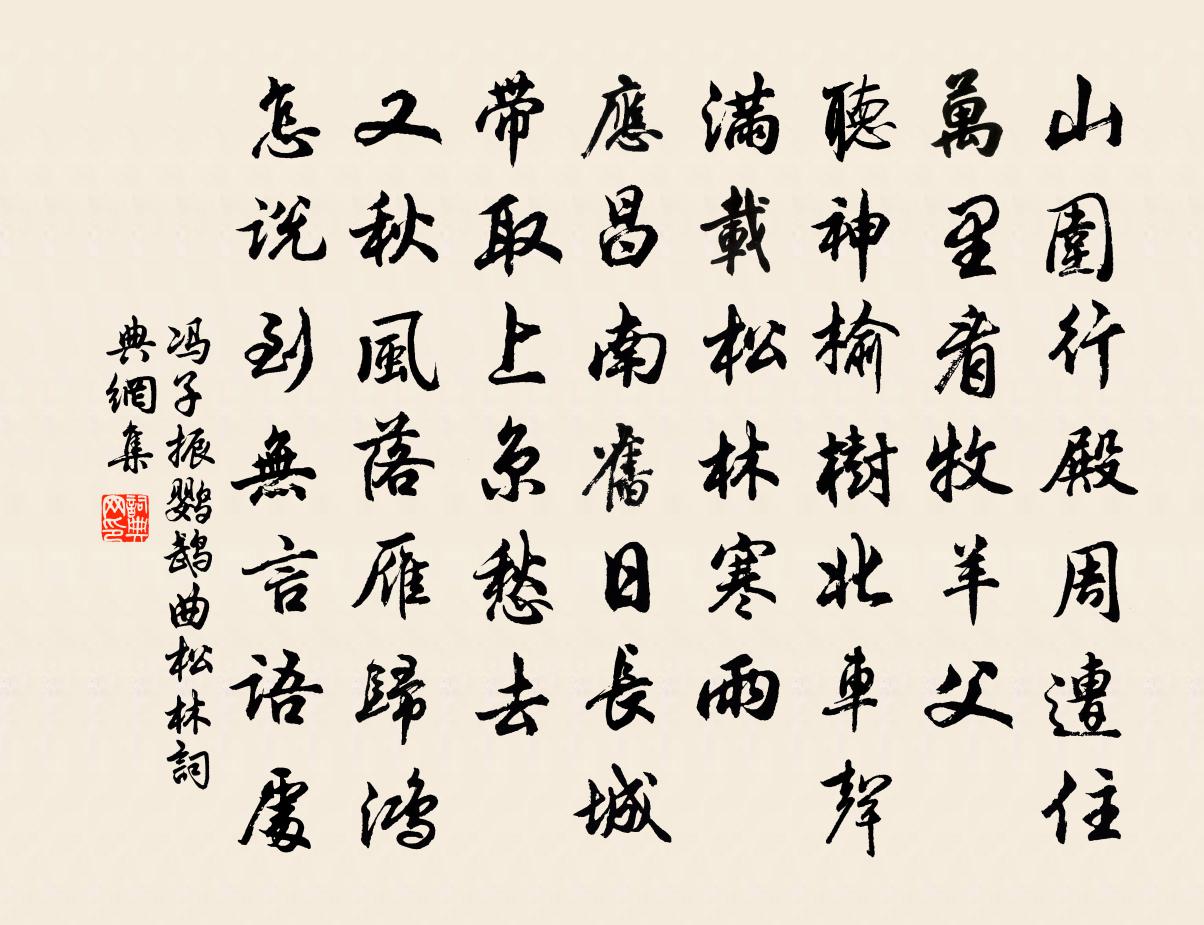 山圍行殿周遭住
萬里看牧羊父
聽神榆樹北車聲
滿載松林寒雨
應昌南舊日長城
帶取上京愁去
又秋風落雁歸鴻
怎說到無言語處
冯子振鹦鹉曲松林詞
典網集
詞典网印